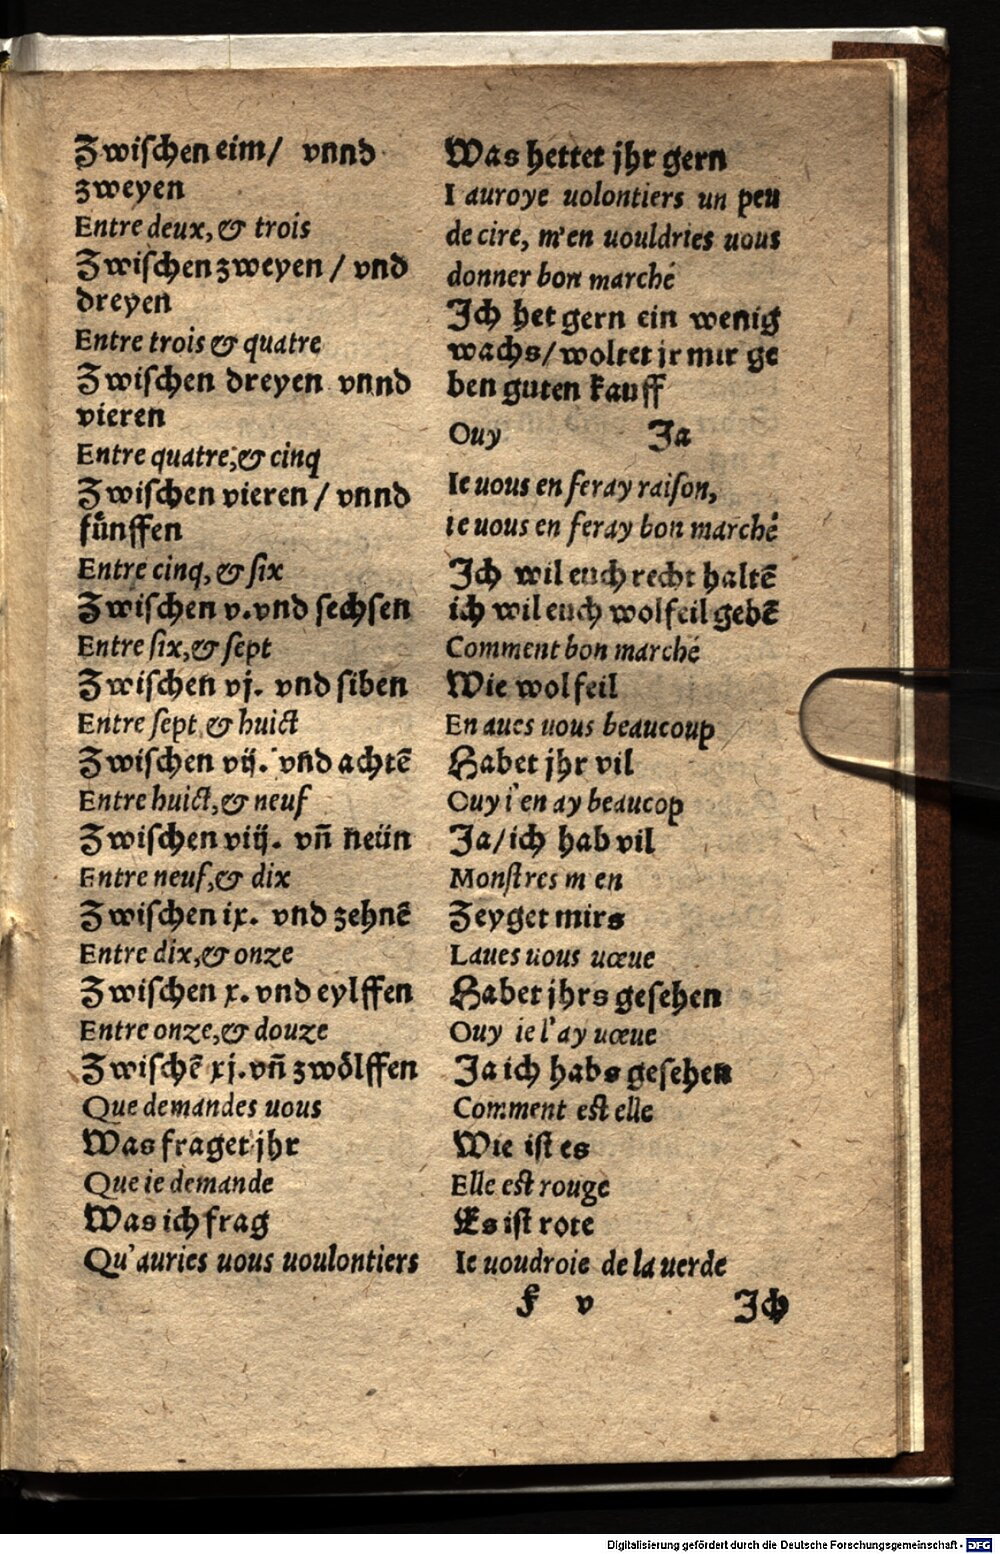 Zwiſchen eim/ vnnd
zweyen
Entre deux, & trois
Zwiſchen zweyen / vnd
dreyen
Entre trois & quatre
Zwiſchen dreyen vnnd
vieren
Entre quatre, & cinq
Zwiſchen vieren / vnnd
fünffen
Entre cinq, & ſix
Zwiſchen v. vnd ſechſen
Entre ſix, & ſept
Zwiſchen vj. vnd ſiben
Entre ſept, & huict
Zwiſchen vij. vnd achtē
Entre huict, & neuf
Zwiſchen viij. vñ neün
Entre neuf, & dix
Zwiſchen ix. vnd zehnē
Entre dix, & onze
Zwiſchen x. vnd eylffen
Entre onze, & douze
Zwiſchē xj. vñ zwölffen
Que demandes uous
Was fraget jhr
Que ie demande
Was ich frag
Qu'auries uous uoulontiers
Was hettet jhr gern
I auroye uolontiers un peu
de cire, m'en uouldries uous
donner bon marché
Ich het gern ein wenig
wachs/ woltet jr mir ge
ben guten kauff
Ouy Ja
Ie uous en feray raiſon,
ie uous en feray bon marché
Ich wil euch recht haltē
ich wil euch wolfeil gebē
Comment bon marché
Wie wolfeil
En aues uous beaucoup
Habet jhr vil
Ouy i'en ay beaucop
Ja/ ich hab vil
Monſtres m en
Zeyget mirs
Laues uous uœue
Habet jhrs geſehen
Ouy ie l'ay uœue
Ja ich habs geſehen
Comment eſt elle
Wie iſt es
Elle eſt rouge
Es iſt rote
Ie uoudroie de la uerde
f v Ich
Digitalisierung gefördert durch die Deutsche Forschungsgemeinschaft - DFG